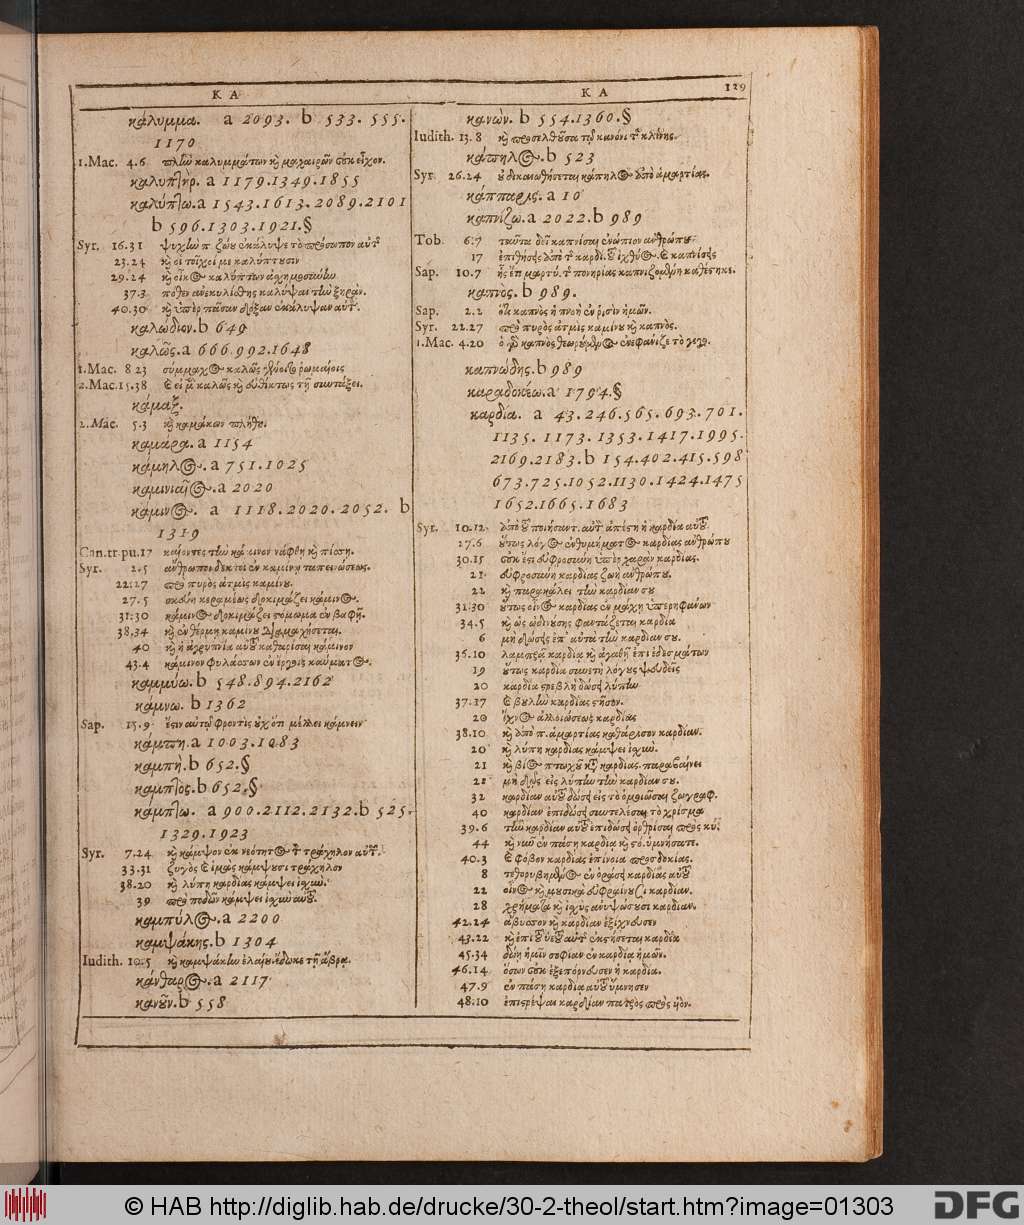 Κ Α
κάλυμμα. a 2093. b 533. 555.
1170
1.Mac. 4.6 καλυμμάτων καὶ μαχαιρῶν οὐκ εἶχον.
καλυπτὴρ. a 1179.1349.1855
καλύπτω. a 1543.1613.2089.2101
b 596.1303.1921.§
Syr. 16.31 ἐκάλυψε τὸ πρόσωπον αὐτῆς
23.24 καὶ οἱ τοῖχοί με καλύπτουσιν
29.24 καὶ οἶκος καλύπτων
37.3 πόθεν ἀνεκυλίσθης καλύψαι τὴν ξηρὰν.
40.30 καὶ ὑπὲρ πᾶσαν δόξαν ἐκάλυψαν αὐτὸ.
καλώδιον. b 649
καλῶς. a 666.992.1648
1.Mac. 8 23 καλῶς ῥωμαίοις
2.Mac. 15.38 καλῶς καὶ εὐθίκτως τῇ συντάξει.
κάμαξ.
2.Mac. 5.3 καὶ καμάκων πλήθη.
καμάρα. a 1154
κάμηλος. a 751.1025
καμινιαῖος. a 2020
κάμινος. a 1118.2020.2052. b
1319
Can.tr.pu.17 καίοντες τὴν κάμινον νάφθη καὶ πίσσῃ.
Syr. 2.5 ἄνθρωποι δεκτοὶ ἐν καμίνῳ ταπεινώσεως.
22.27 πρὸ πυρὸς ἀτμὶς καμίνου.
27.5 σκεύη κεραμέως δοκιμάζει κάμινος.
31.30 κάμινος δοκιμάζει στόμωμα ἐν βαφῇ.
38.34 καὶ ἐν θέρμῃ καμίνου διαμαχήσεται.
40 καὶ ἡ ἀγρυπνία αὐτοῦ καθαρίσαι κάμινον
43.4 κάμινον φυλάσσων ἐν ἔργοις καύματος.
καμμύω. b 548.894.2162
κάμνω. b 1362
Sap. 15.9 ἔστιν αὐτῷ φροντὶς οὐχ ὅτι μέλλει κάμνειν
κάμπη. a 1003.1083
καμπή. b 652.§
καμπτὸς. b 652.§
κάμπτω. a 900.2112.2132. b 525.
1329.1923
Syr. 7.24 καὶ κάμψον ἐκ νεότητος τὸν τράχηλον αὐτῶν.
33.31 ζυγὸς καὶ ἱμὰς κάμψουσι τράχηλον
38.20 καὶ λύπη καρδίας κάμψει ἰσχὺν.
39 πρὸ ποδῶν κάμψει ἰσχὺν αὐτοῦ.
καμπύλος. a 2200
καμψάκης. b 1304
Iudith. 10.5 καὶ καμψάκην ἐλαίου ἔδωκε τῇ ἅβρᾳ.
κάνθαρος. a 2117
κανοῦν. b 558
Κ Α 129
κανὼν. b 554.1360.§
Iudith. 13.8 καὶ προσελθοῦσα τῷ κανόνι τῆς κλίνης.
κάπηλος. b 523
Syr. 26.24 οὐ δικαιωθήσεται κάπηλος ἀπὸ ἁμαρτίας.
κάππαρις. a 10
καπνίζω. a 2022. b 989
Tob. 6.7 ταῦτα δεῖ καπνίσαι ἐνώπιον ἀνθρώπου
17 ἐπιθήσεις ἀπὸ τῆς καρδί. τοῦ ἰχθύος καὶ καπνίσεις
Sap. 10.7 ἧς ἔτι μαρτύ. τῆς πονηρίας καπνιζομένη καθέστηκε.
καπνὸς. b 989.
Sap. 2.2 ὅτι καπνὸς ἡ πνοὴ ἐν ῥισὶν ἡμῶν.
Syr. 22.27 πρὸ πυρὸς ἀτμὶς καμίνου καὶ καπνὸς.
1.Mac. 4.20 ὁ γὰρ καπνὸς θεωρούμενος ἐνεφάνιζε τὸ γεγο.
καπνώδης. b 989
καραδοκέω. a 1794.§
καρδία. a 43.246.565.693.701.
1135. 1173. 1353.1417.1995.
2169.2183. b 154.402.415.598
673.725.1052.1130.1424.1475
1652.1665.1683
Syr. 10.12 ἀπὸ τοῦ ποιήσαντ. αὐτὸν ἀπέστη ἡ καρδία αὐτοῦ.
27.6 οὕτως λόγος ἐνθυμήματος καρδίας ἀνθρώπου
30.15 οὐκ ἔστι εὐφροσύνη ὑπὲρ χαρὰν καρδίας.
21 εὐφροσύνη καρδίας ζωὴ ἀνθρώπου.
22 καὶ παρακάλει τὴν καρδίαν σου
31.30 οὕτως οἶνος καρδίας ἐν μάχῃ ὑπερηφάνων
34.5 καὶ ὡς ὠδινούσης φαντάζεται καρδία
6 μὴ δώσῃς ἐπ' αὐτὰ τὴν καρδίαν σου.
36.10 λαμπρὰ καρδία καὶ ἀγαθὴ ἐπὶ ἐδεσμάτων
19 οὕτως καρδία συνετὴ λόγους ψευδεῖς
20 καρδία στρεβλὴ δώσει λύπην
37.17 καρδίας στῆσον.
20 ἴχνος ἀλλοιώσεως καρδίας
38.10 καὶ ἀπὸ π. ἁμαρτίας καθάρισον καρδίαν.
20 καὶ λύπη καρδίας κάμψει ἰσχὺν.
21 καὶ βίος πτωχοῦ κατὰ καρδίας. παραβαίνει
21 μὴ δῷς εἰς λύπην τὴν καρδίαν σου.
32 καρδίαν αὐτοῦ δώσει εἰς τὸ ὁμοιῶσαι ζωγραφ.
40 καρδίαν ἐπιδώσει συντελέσαι τὸ χρίσμα
39.6 τὴν καρδίαν αὐτοῦ ἐπιδώσει ὀρθρίσαι πρὸς κύ.
44 καὶ νῦν ἐν πάσῃ καρδίᾳ καὶ στό. ὑμνήσατε.
40.3 καὶ φόβον καρδίας ἐπίνοια προσδοκίας.
8 τεθορυβημένος ἐν ὁράσει καρδίας αὐτοῦ
22 οἶνος καὶ μουσικὰ εὐφραίνουσι καρδίαν.
28 χρήματα καὶ ἰσχὺς ἀνυψώσουσι καρδίαν.
42.24 ἄβυσσον καὶ καρδίαν ἐξίχνευσεν
43.22 καὶ ἐπὶ τοῦ ὑετοῦ αὐτῆς ἐκστήσεται καρδία
45.34 δῴη ἡμῖν σοφίαν ἐν καρδίᾳ ἡμῶν.
46.14 ὅσων οὐκ ἐξεπόρνευσεν ἡ καρδία.
47.9 ἐν πάσῃ καρδίᾳ αὐτοῦ ὕμνησεν
48.10 ἐπιστρέψαι καρδίαν πατρὸς πρὸς υἱὸν.
© HAB http://diglib.hab.de/drucke/30-2-theol/start.htm?image=01303
DFG